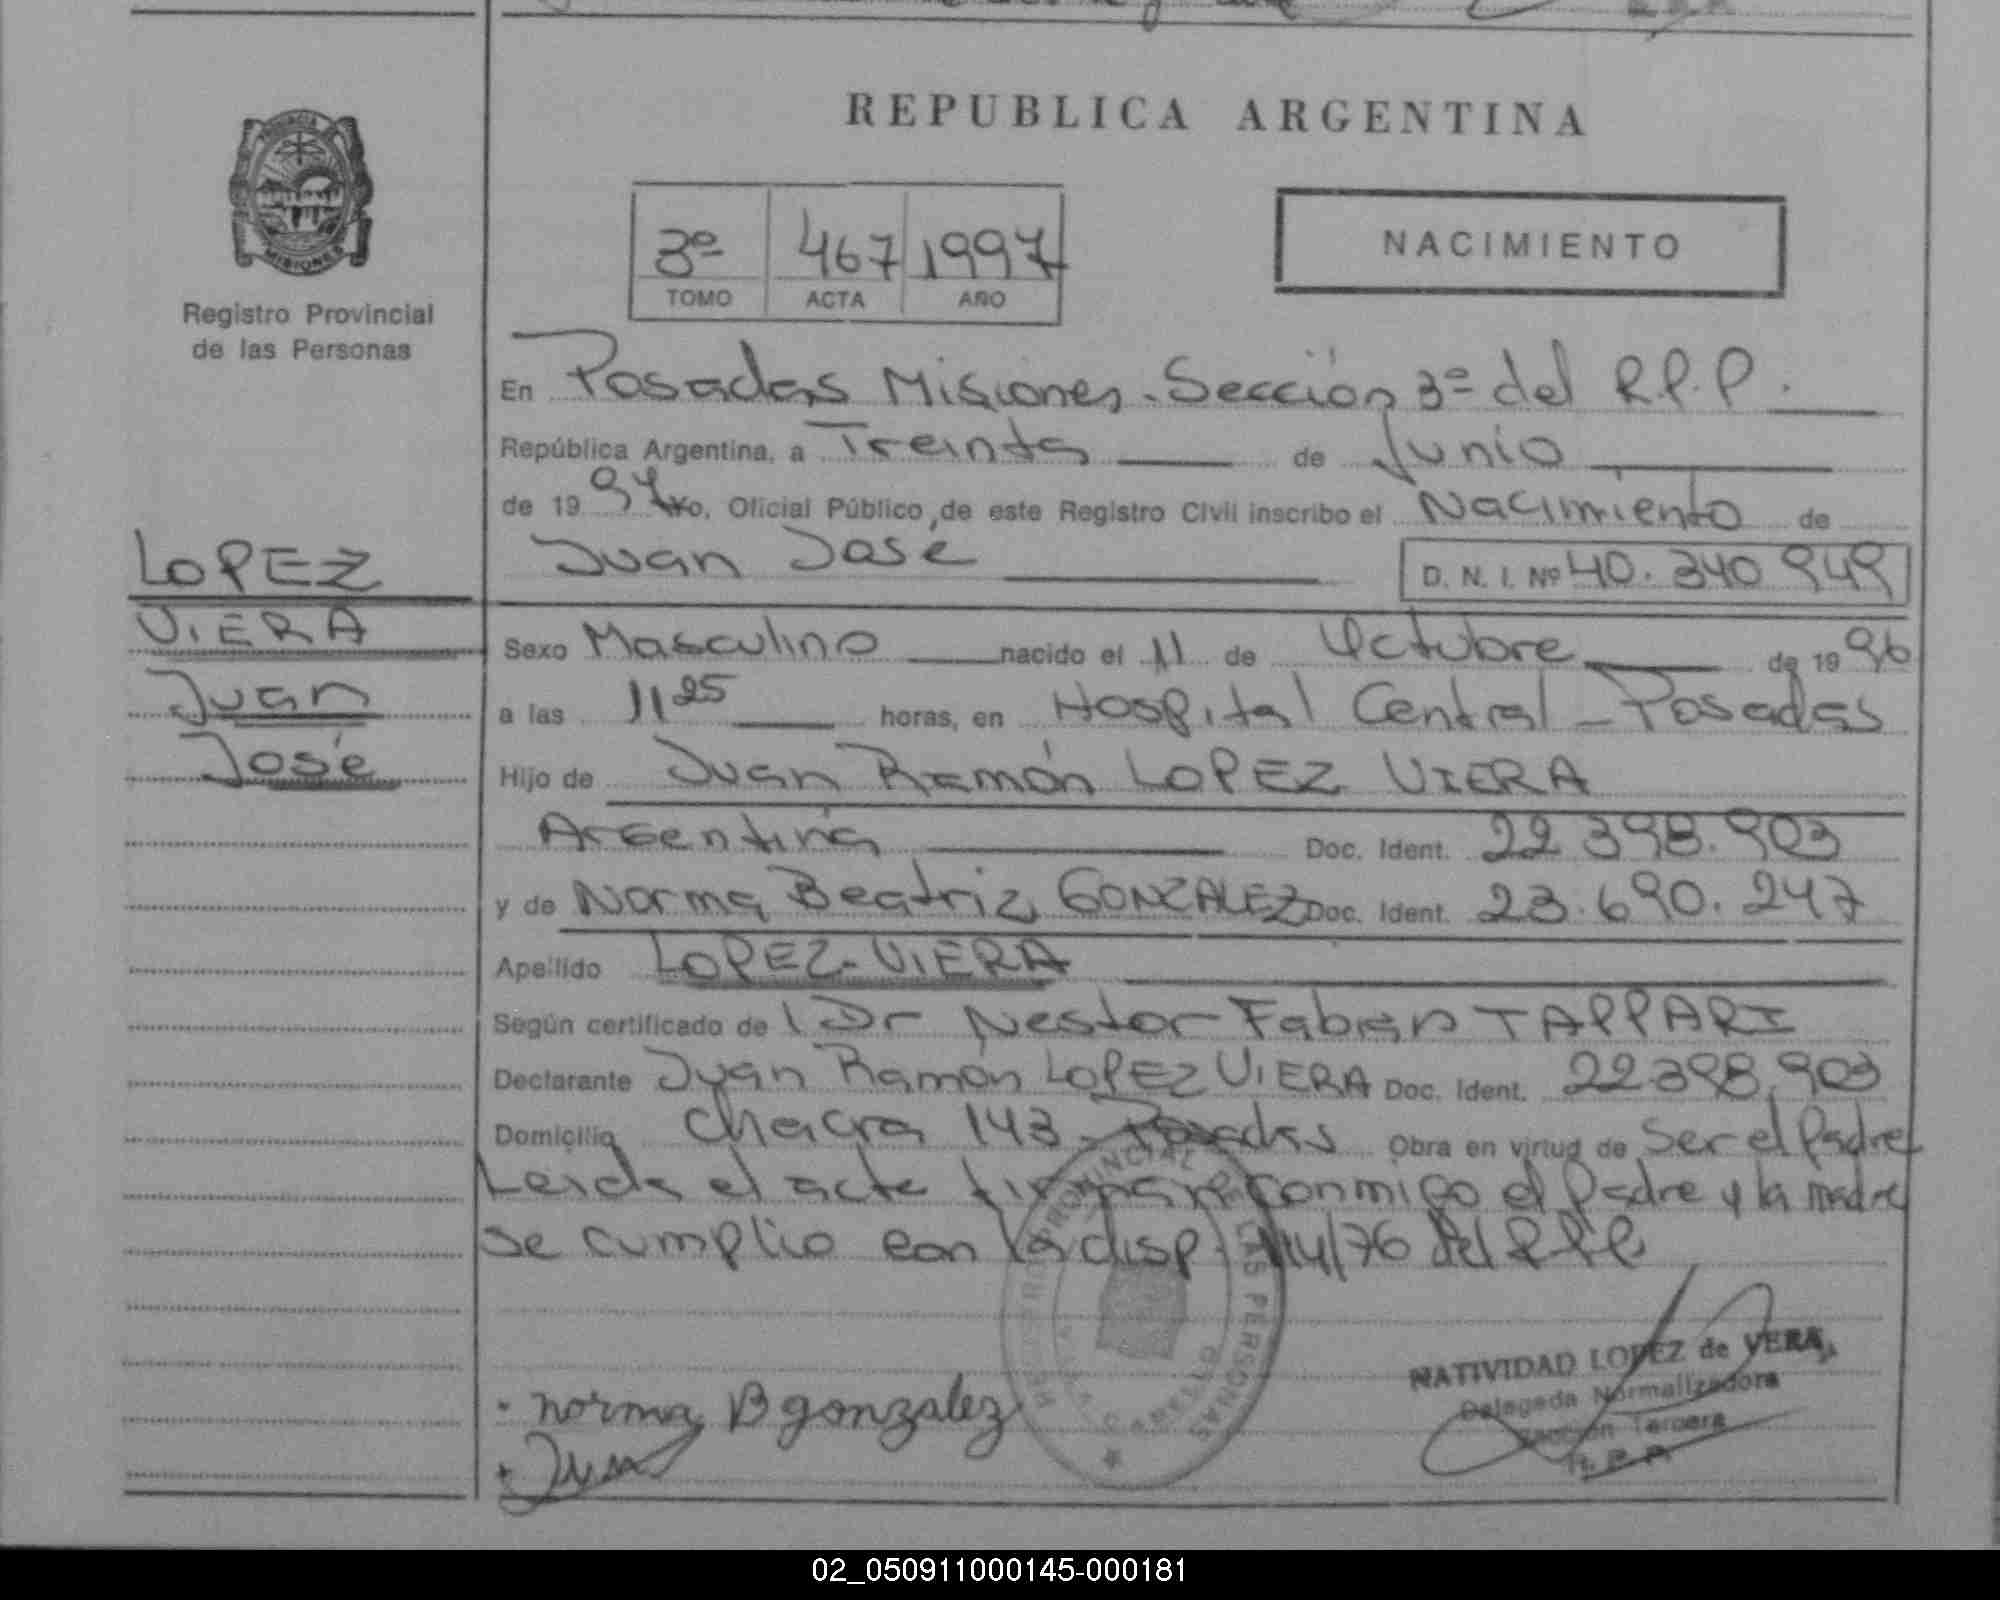 REPUBLICA ARGENTINA
PROVINCIA
MISIONES
Registro Provincial
de las Personas
3º 467 1997
TOMO ACTA AÑO
NACIMIENTO
En Posadas Misiones. Sección 3º del R.P.P.
República Argentina, a Treinta de Junio
de 1997 Yo, Oficial Público, de este Registro Civil inscribo el Nacimiento de
Juan José D. N. I. Nº 40.340 949
LOPEZ
VIERA
Juan
José
Sexo Masculino nacido el 11 de Octubre de 1996
a las 11 25 horas, en Hospital Central - Posadas
Hijo de Juan Ramón LOPEZ VIERA
Argentina Doc. Ident. 22 398.903
y de Norma Beatriz GONZALEZ Doc. Ident. 23.690.247
Apellido LOPEZ-VIERA
Según certificado de Dr Nestor Fabian TAPPARI
Declarante Juan Ramón LOPEZ VIERA Doc. Ident. 22398.903
Domicilio Chacra 143 - Posadas Obra en virtud de Ser el Padre
Leida el acta firman conmigo el Padre y la madre
se cumplio con la disp. 114/76 del RPP
PROVINCIAL DE LAS PERSONAS
norma B gonzalez
Juan
NATIVIDAD LOPEZ de VERA
Delegada Normalizadora
Sección Tercera
R.P.P.
02_050911000145-000181